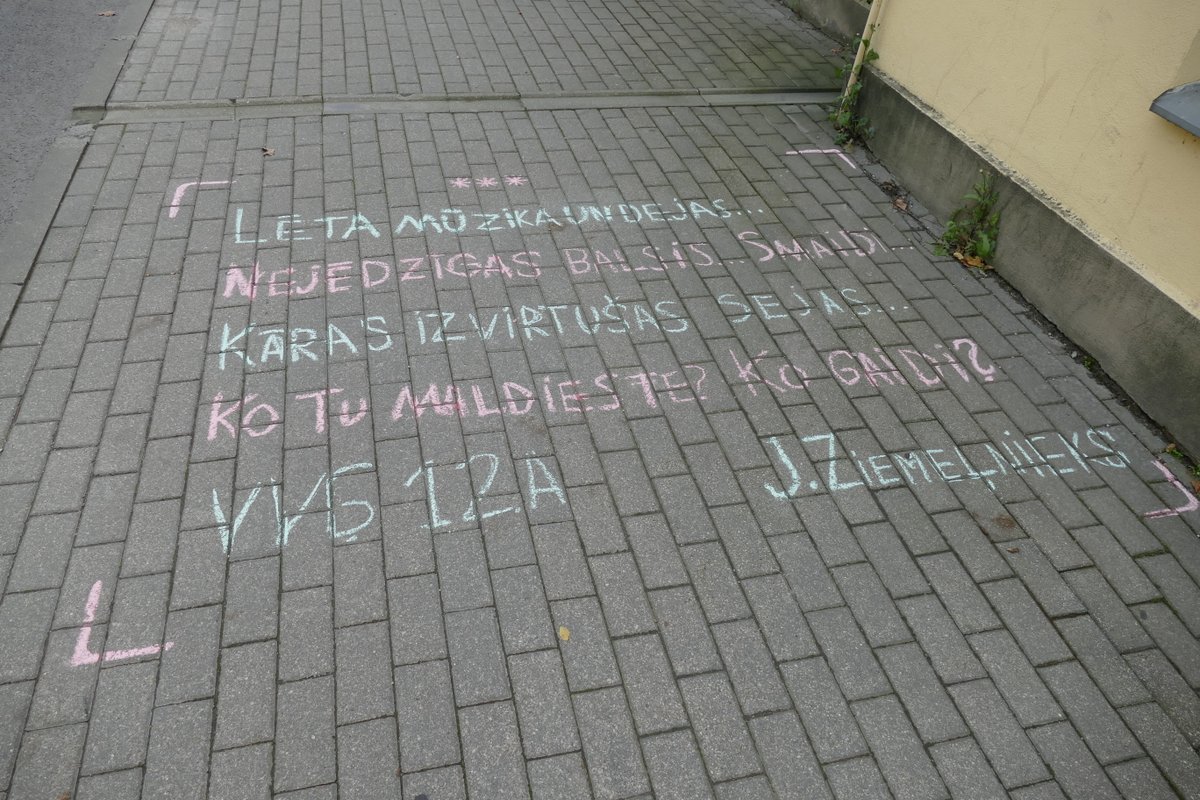 ***
LĒTA MŪZIKA UN DEJAS...
NEJĒDZĪGAS BALSIS... SMAIDI...
KĀRAS IZVIRTUŠAS SEJAS...
KO TU MALDIES TE? KO GAIDI?
VVĢ 12.A
J. ZIEMEĻNIEKS